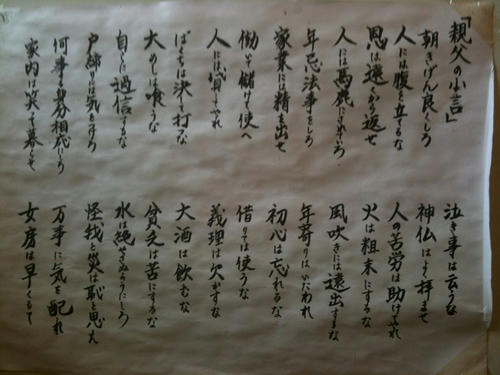 「親父の小言」
朝きげん良くしろ
人には腹を立てるな
恩は遠くから返せ
人には馬鹿にされていろ
年忌法事をしろ
家業には精を出せ
働いて儲けて使へ
人には貸してやれ
ばくちは決して打つな
大めしは喰うな
自らに過信するな
戸締りに気を
何事も身分相応にしろ
家内は笑ふて暮らせ
泣き事は云うな
神仏はよく拝ませ
人の苦労は助けてやれ
火は粗末にするな
風吹きには遠出するな
年寄りはいたわれ
初心は忘れるな
借りは使うな
義理は欠かすな
大酒は飲むな
貧乏は苦にするな
水は絶さぬようにしろ
怪我と災は恥と思え
万事に気を配れ
女房は早くもて